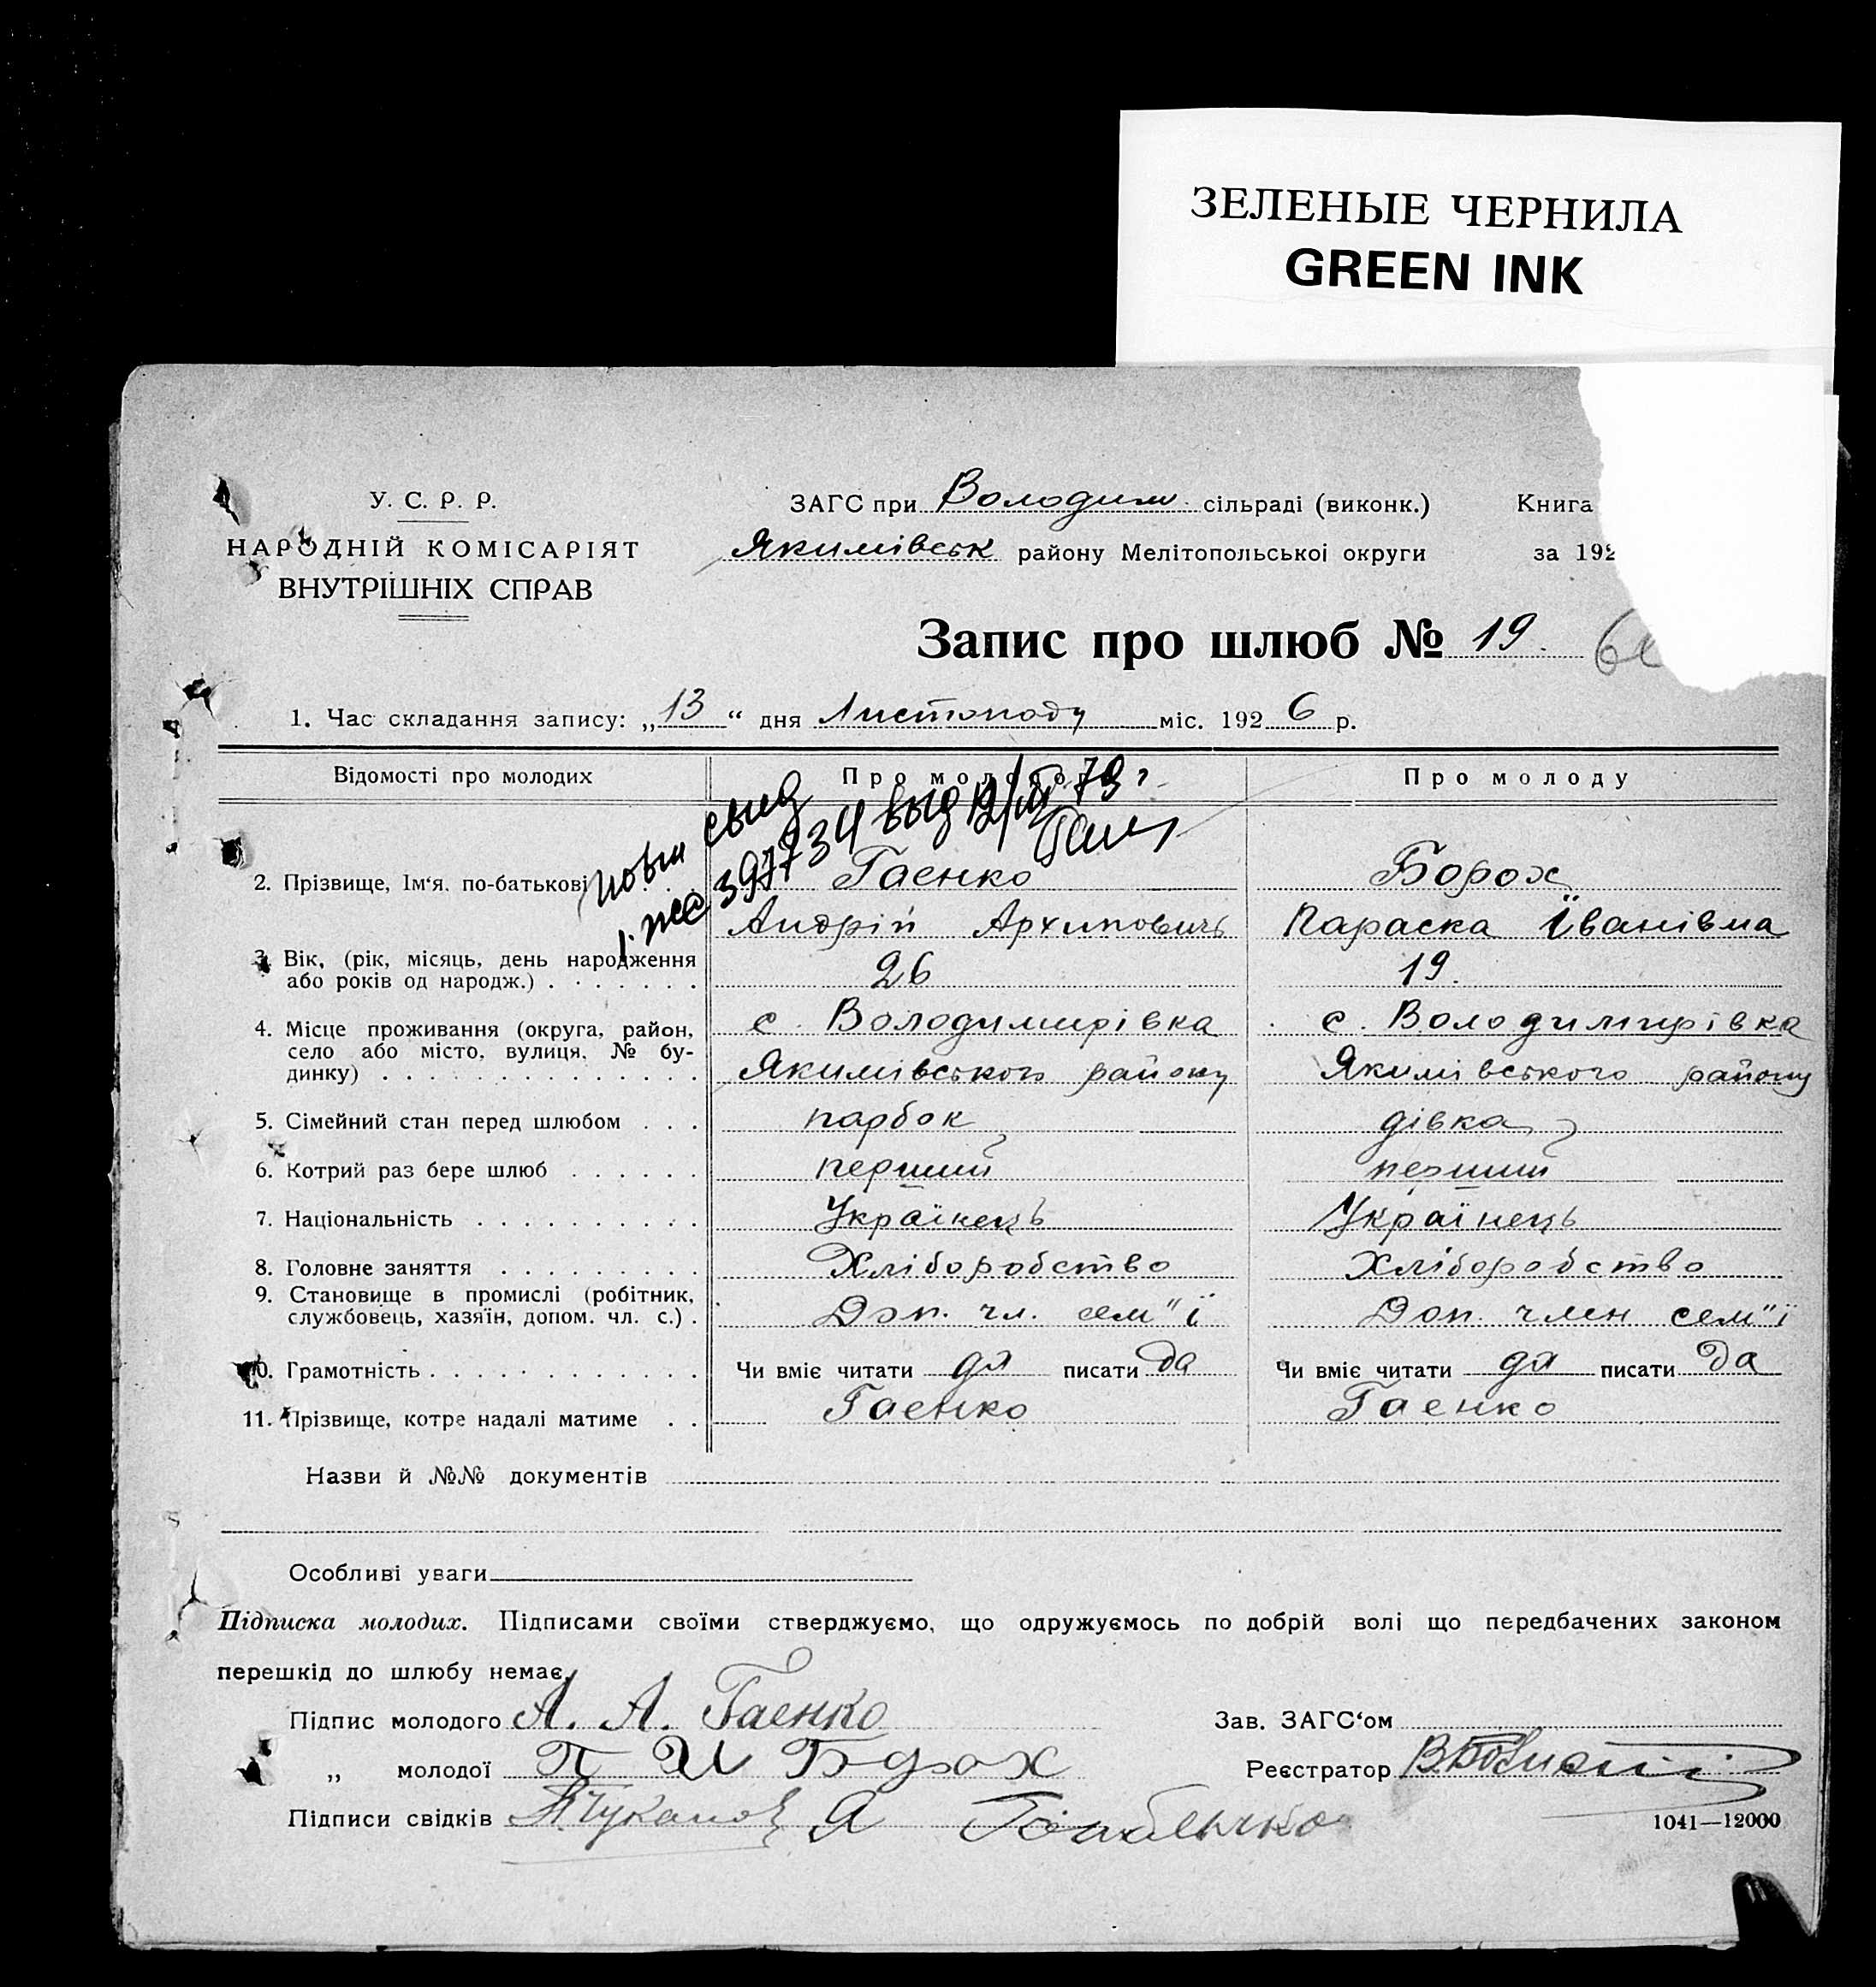 ЗЕЛЕНЫЕ ЧЕРНИЛА
GREEN INK
У. С. Р. Р.
НАРОДНІЙ КОМІСАРІЯТ
ВНУТРІШНІХ СПРАВ
ЗАГС при Володим. сільраді (виконк.)
Якимівськ району Мелітопольської округи
Книга
за 192
Запис про шлюб № 19.
1. Час складання запису: „13“ дня Листопаду міс. 1926 р.
Відомості про молодих
Про молодого
Про молоду
2. Прізвище, Ім‘я, по-батькові
Гаенко
Андрій Архипович
Борох
Параска Їванівна
3. Вік, (рік, місяць, день народження
або років од народж.)
26
19.
4. Місце проживання (округа, район,
село або місто, вулиця, № бу-
динку)
с. Володимирівка
Якимівського району
с. Володимирівка
Якимівського району
5. Сімейний стан перед шлюбом
парбок
дівка
6. Котрий раз бере шлюб
перший
перший
7. Національність
Українець
Українець
8. Головне заняття
Хліборобство
Хліборобство
9. Становище в промислі (робітник,
службовець, хазяїн, допом. чл. с.)
Доп. чл. сем"ї
Доп. член сем"ї
10. Грамотність
Чи вміє читати да писати да
Чи вміє читати да писати да
11. Прізвище, котре надалі матиме
Гаенко
Гаенко
Назви й №№ документів
Особливі уваги
Підписка молодих. Підписами своїми стверджуємо, що одружуємось по добрій волі що передбачених законом
перешкід до шлюбу немає.
Підпис молодого А. А. Гаенко
Зав. ЗАГС‘ом
„ молодої П И Борох
Реєстратор
Підписи свідків
1041—12000